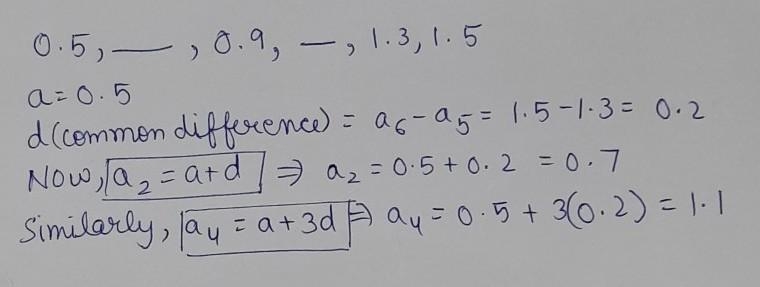 0.5, __, 0.9, __, 1.3, 1.5
a = 0.5
d (common difference) = a₆ - a₅ = 1.5 - 1.3 = 0.2
Now, a₂ = a + d ⇒ a₂ = 0.5 + 0.2 = 0.7
Similarly, a₄ = a + 3d ⇒ a₄ = 0.5 + 3(0.2) = 1.1